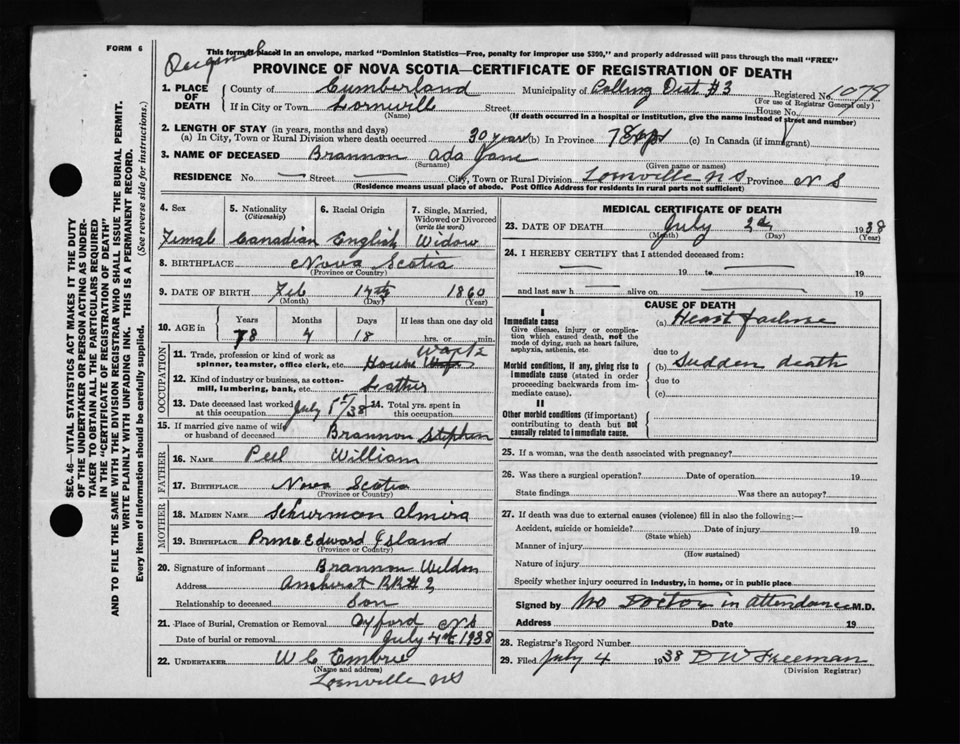 FORM 6
This form, placed in an envelope, marked "Dominion Statistics—Free, penalty for improper use $300," and properly addressed will pass through the mail "FREE"
PROVINCE OF NOVA SCOTIA—CERTIFICATE OF REGISTRATION OF DEATH
1. PLACE OF DEATH
County of Cumberland Municipality of Polling Dist #3 Registered No. 1079
(For use of Registrar General only)
If in City or Town Lornvill Street House No.
(Name) (If death occurred in a hospital or institution, give the name instead of street and number)
2. LENGTH OF STAY (in years, months and days)
(a) In City, Town or Rural Division where death occurred 30 years (b) In Province 78 (c) In Canada (if immigrant)
3. NAME OF DECEASED Brannon Ada Jane
(Surname) (Given name or names)
RESIDENCE No. — Street — City, Town or Rural Division Lornville N S Province N S
(Residence means usual place of abode. Post Office Address for residents in rural parts not sufficient)
SEC. 46—VITAL STATISTICS ACT MAKES IT THE DUTY
OF THE UNDERTAKER OR PERSON ACTING AS UNDER-
TAKER TO OBTAIN ALL THE PARTICULARS REQUIRED
IN THE "CERTIFICATE OF REGISTRATION OF DEATH"
AND TO FILE THE SAME WITH THE DIVISION REGISTRAR WHO SHALL ISSUE THE BURIAL PERMIT.
WRITE PLAINLY WITH UNFADING INK. THIS IS A PERMANENT RECORD.
Every item of information should be carefully supplied. (See reverse side for instructions.)
4. Sex
5. Nationality (Citizenship)
6. Racial Origin
7. Single, Married, Widowed or Divorced (write the word)
Femal Canadian English Widow
8. BIRTHPLACE Nova Scotia
(Province or Country)
9. DATE OF BIRTH Feb 14th 1860
(Month) (Day) (Year)
10. AGE in
Years Months Days If less than one day old
78 4 18 hrs. or min.
OCCUPATION
11. Trade, profession or kind of work as spinner, teamster, office clerk, etc. House Work
12. Kind of industry or business, as cotton-mill, lumbering, bank, etc.
13. Date deceased last worked at this occupation July 1st/38 14. Total yrs. spent in this occupation
15. If married give name of wife or husband of deceased Brannon Stephen
FATHER
16. NAME Peel William
17. BIRTHPLACE Nova Scotia
(Province or Country)
MOTHER
18. MAIDEN NAME Schurman Almira
19. BIRTHPLACE Prince Edward Island
(Province or Country)
20. Signature of informant Brannon Weldon
Address Amherst RR#2
Relationship to deceased Son
21. Place of Burial, Cremation or Removal Oxford N S
Date of burial or removal July 4th 1938
22. UNDERTAKER W C Embrie
(Name and address)
Lornville N S
MEDICAL CERTIFICATE OF DEATH
23. DATE OF DEATH July 2d 1938
(Month) (Day) (Year)
24. I HEREBY CERTIFY that I attended deceased from:
— 19 to — 19
and last saw h — alive on — 19
CAUSE OF DEATH
I
Immediate cause
Give disease, injury or complica-
tion which caused death, not the
mode of dying, such as heart failure,
asphyxia, asthenia, etc.
(a) Heart failure
due to
Morbid conditions, if any, giving rise to
immediate cause (stated in order
proceeding backwards from im-
mediate cause).
(b) Sudden death
due to
(c)
II
Other morbid conditions (if important)
contributing to death but not
causally related to immediate cause.
25. If a woman, was the death associated with pregnancy?
26. Was there a surgical operation? Date of operation 19
State findings Was there an autopsy?
27. If death was due to external causes (violence) fill in also the following:—
Accident, suicide or homicide? Date of injury 19
(State which)
Manner of injury
(How sustained)
Nature of injury
Specify whether injury occurred in industry, in home, or in public place
Signed by No Doctor in attendance M.D.
Address Date 19
28. Registrar's Record Number
29. Filed July 4 1938 D W Freeman
(Division Registrar)